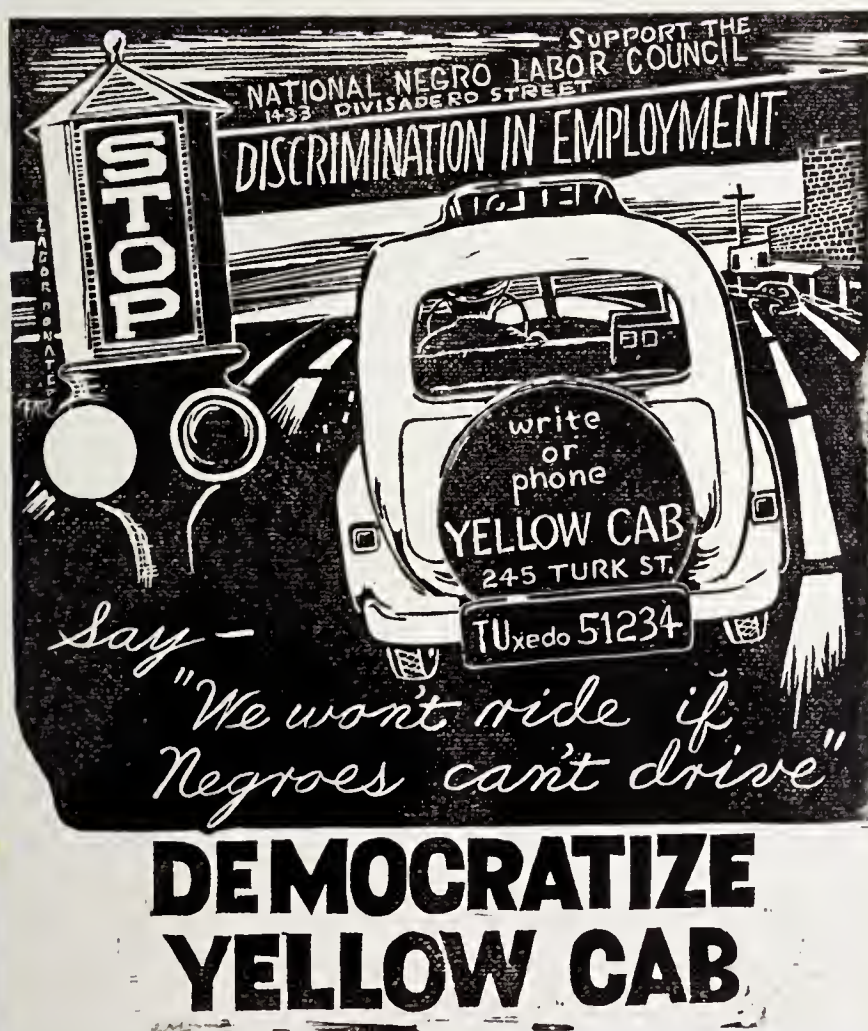 SUPPORT THE
NATIONAL NEGRO LABOR COUNCIL
1433 DIVISADERO STREET
STOP
DISCRIMINATION IN EMPLOYMENT
LABOR DONATED
write
or
phone
YELLOW CAB
245 TURK ST.
TUxedo 51234
Say —
"We won't ride if
Negroes can't drive"
DEMOCRATIZE
YELLOW CAB